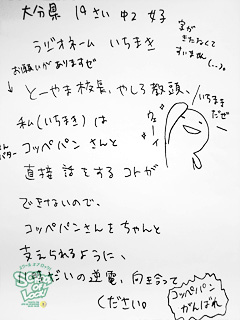 大分県 14さい 中2 女子
ラジオネーム いちまき
字がきたなくてすいません(._.)
お願いがありますぜ
↓
とーやま校長、やしろ教頭、
私(いちまき)は
コッペパンさんと
直接話をするコトが
できないので、
コッペパンさんをちゃんと
支えられるように、
時だいの逆電、向き合って
ください。
ウェーイ
いちまきだぜ
コッペパンがんばれ
SCHOOL OF LOCK!